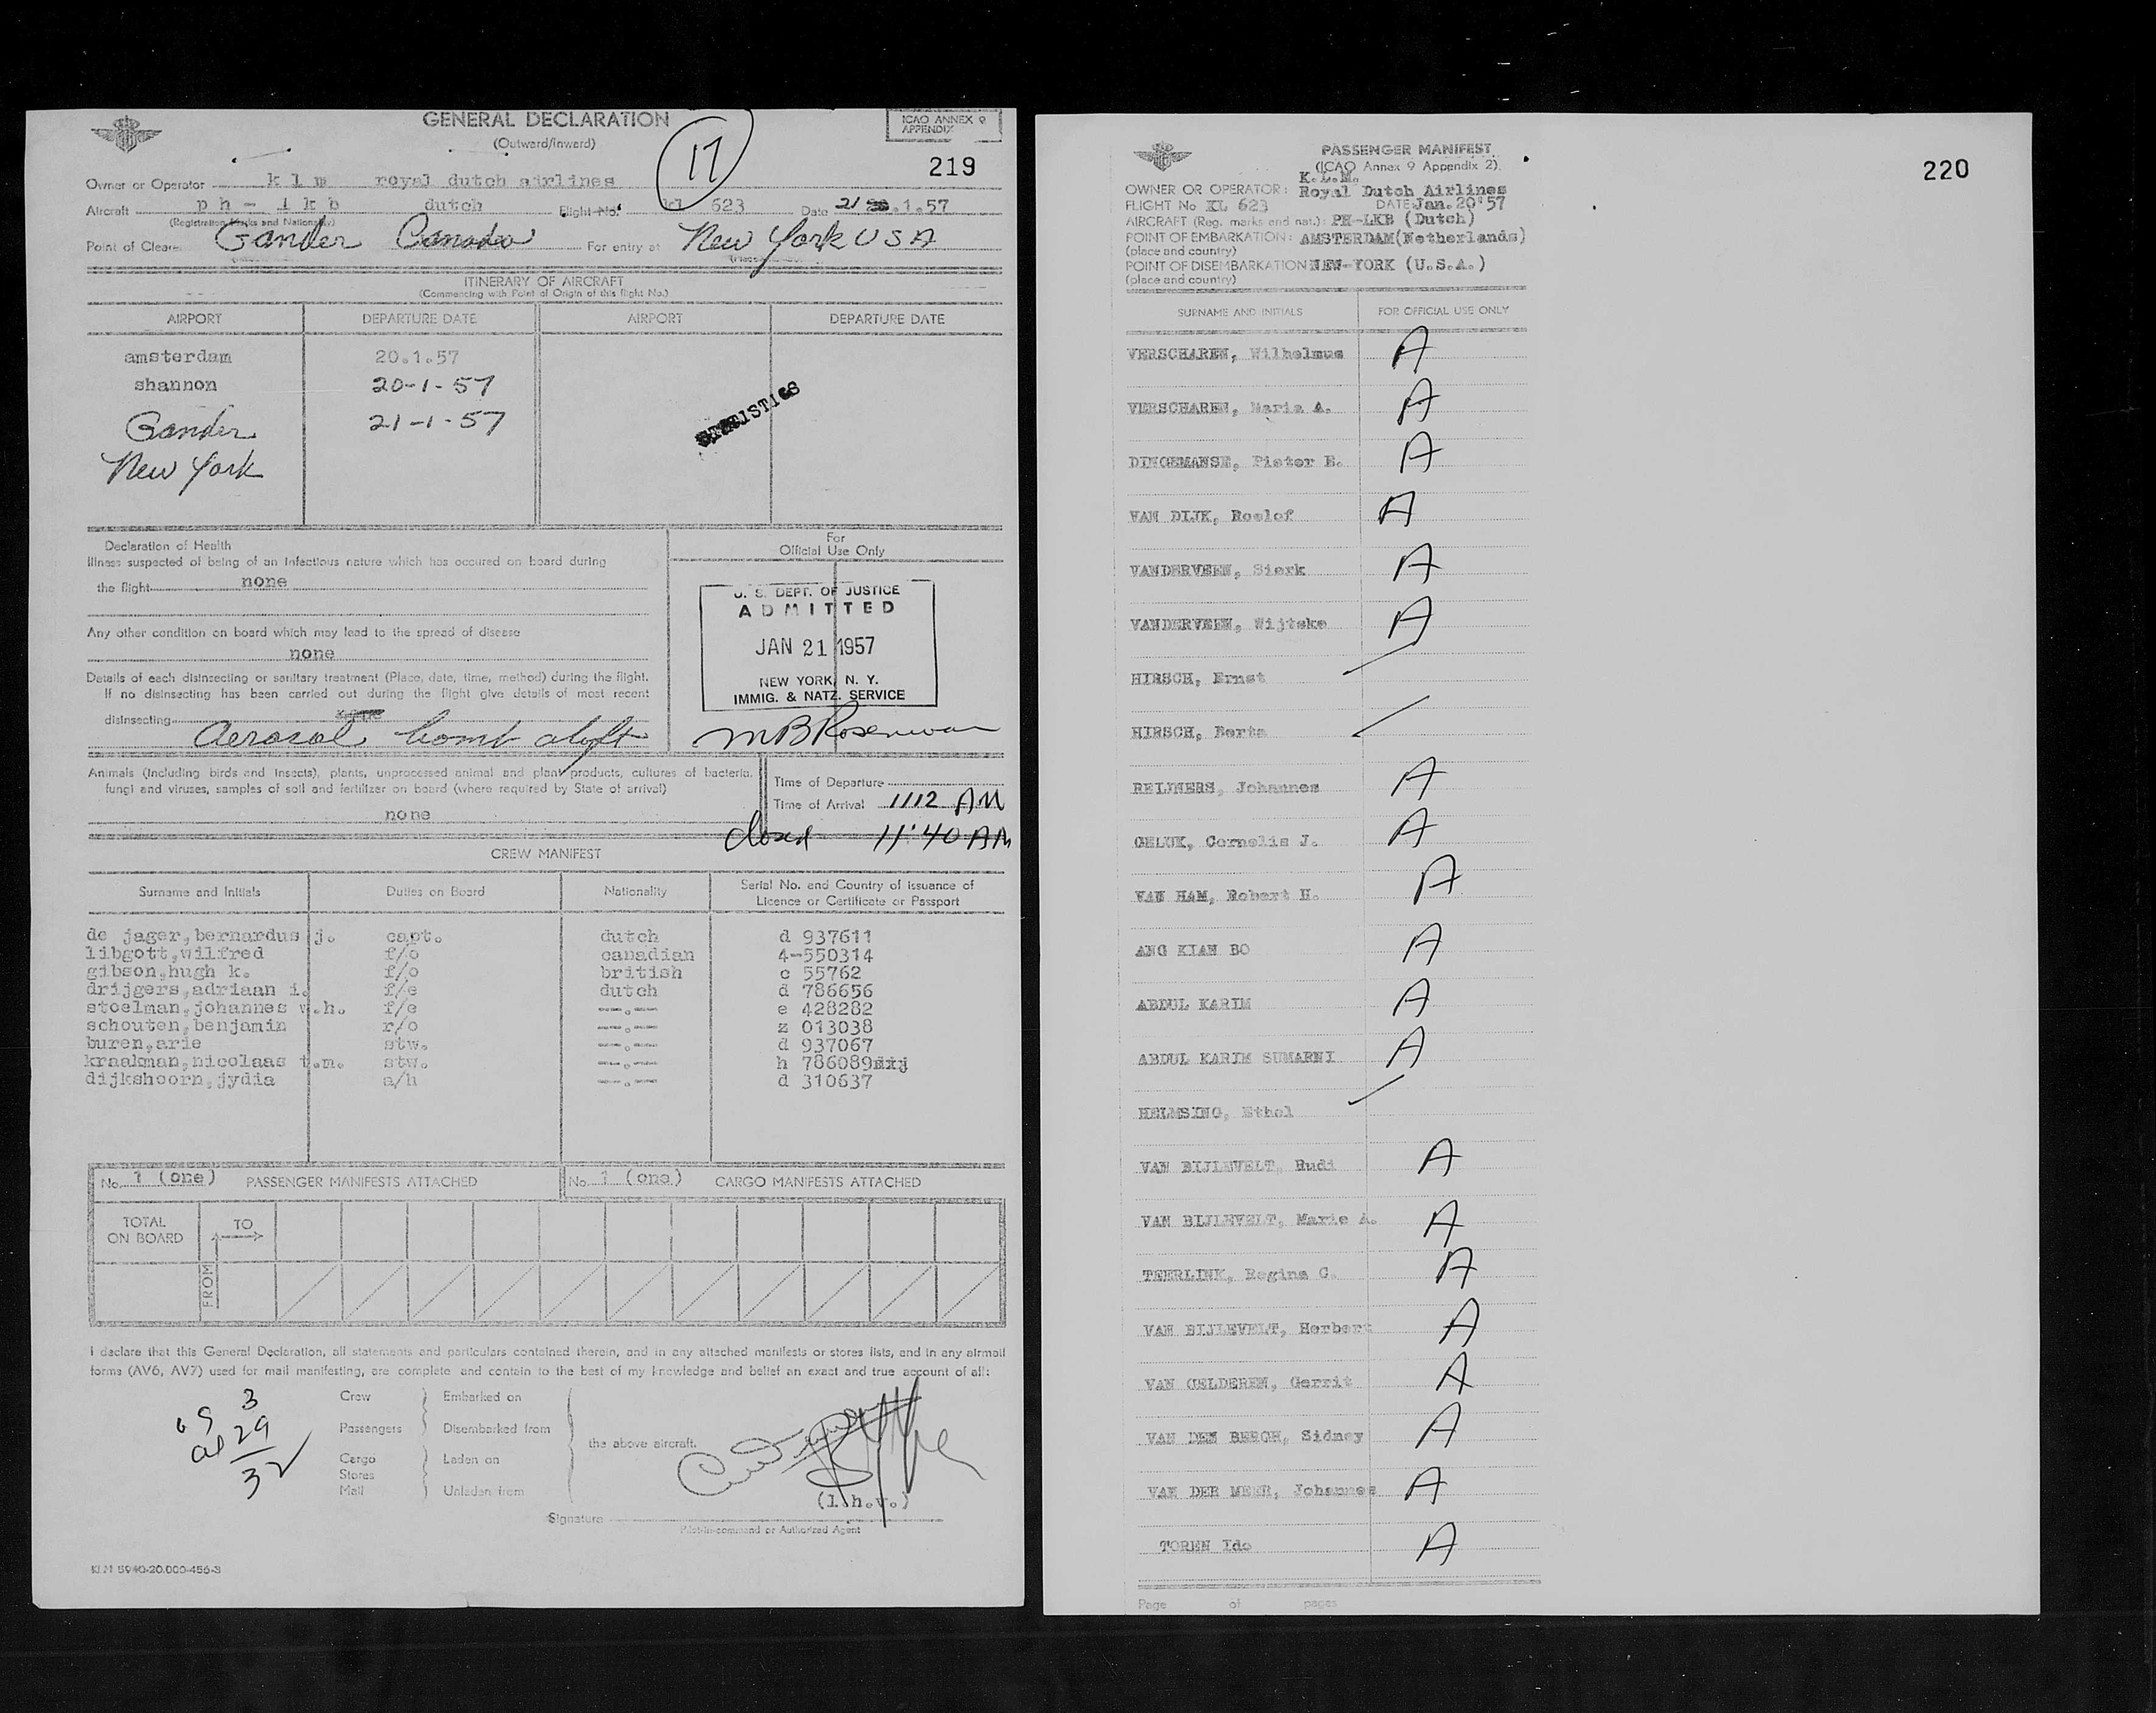 GENERAL DECLARATION
(Outward/inward)
ICAO ANNEX 9
APPENDIX
17
219
Owner or Operator k l m royal dutch airlines
Aircraft p h - l k b dutch Flight No. kl 623 Date 21 .1.57
(Registration Marks and Nationality)
Point of Clear. Gander Canada For entry at New York U S A
(Place
ITINERARY OF AIRCRAFT
(Commencing with Point of Origin of this flight No.)
AIRPORT DEPARTURE DATE AIRPORT DEPARTURE DATE
amsterdam 20.1.57
shannon 20-1-57
Gander 21-1-57
New York
STATISTICS
Declaration of Health
Illness suspected of being of an infectious nature which has occured on board during
the flight none
Any other condition on board which may lead to the spread of disease
none
Details of each disinsecting or sanitary treatment (Place, date, time, method) during the flight.
If no disinsecting has been carried out during the flight give details of most recent
disinsecting none
Aerosol bomb aloft
For
Official Use Only
U. S. DEPT. OF JUSTICE
ADMITTED
JAN 21 1957
NEW YORK, N. Y.
IMMIG. & NATZ. SERVICE
Animals (including birds and insects), plants, unprocessed animal and plant products, cultures of bacteria,
fungi and viruses, samples of soil and fertilizer on board (where required by State of arrival)
none
Time of Departure
Time of Arrival 1112 AM
closed 11:40 AM
CREW MANIFEST
Surname and Initials Duties on Board Nationality Serial No. and Country of Issuance of
Licence or Certificate or Passport
de jager,bernardus j. capt. dutch d 937611
libgott,wilfred f/o canadian 4-550314
gibson,hugh k. f/o british c 55762
drijgers,adriaan i. f/e dutch d 786656
stoelman,johannes w.h. f/e --.-- e 428282
schouten,benjamin r/o --.-- z 013038
buren,arie stw. --.-- d 937067
kraakman,nicolaas t.m. stw. --.-- h 786089
dijkshoorn,jydia a/h --.-- d 310637
No. 1 (one) PASSENGER MANIFESTS ATTACHED No. 1 (one) CARGO MANIFESTS ATTACHED
TOTAL
ON BOARD
TO
FROM
I declare that this General Declaration, all statements and particulars contained therein, and in any attached manifests or stores lists, and in any airmail
forms (AV6, AV7) used for mail manifesting, are complete and contain to the best of my knowledge and belief an exact and true account of all:
Crew Embarked on
Passengers Disembarked from
the above aircraft.
Cargo Laden on
Stores
Mail Unladen from
3
29
32
(l.h.v.)
Signature
Pilot-in-command or Authorized Agent
KLM 5940-20.000-456-3
PASSENGER MANIFEST
(ICAO Annex 9 Appendix 2).
220
K.L.M.
OWNER OR OPERATOR: Royal Dutch Airlines
FLIGHT No KL 623 DATE Jan. 20'57
AIRCRAFT (Reg. marks and nat.): PH-LKB (Dutch)
POINT OF EMBARKATION: AMSTERDAM(Netherlands)
(place and country)
POINT OF DISEMBARKATION NEW-YORK (U.S.A.)
(place and country)
SURNAME AND INITIALS FOR OFFICIAL USE ONLY
VERSCHAREN, Wilhelmus A
VERSCHAREN, Maria A. A
DINGEMANSE, Pieter E. A
VAN DIJK, Roelof A
VANDERVEEN, Sierk A
VANDERVEEN, Wijtske A
HIRSCH, Ernst
HIRSCH, Berta
REIJNERS, Johannes A
GELUK, Cornelis J. A
VAN HAM, Robert H. A
ANG KIAN BO A
ABDUL KARIM A
ABDUL KARIM SUMARNI A
HELMSING, Ethel
VAN BIJLEVELT, Rudi A
VAN BIJLEVELT, Marie A. A
TEERLINK, Regina C. A
VAN BIJLEVELT, Herbert A
VAN GELDEREN, Gerrit A
VAN DEN BERGH, Sidney A
VAN DER MEER, Johannes A
TOREN Ido A
Page of pages